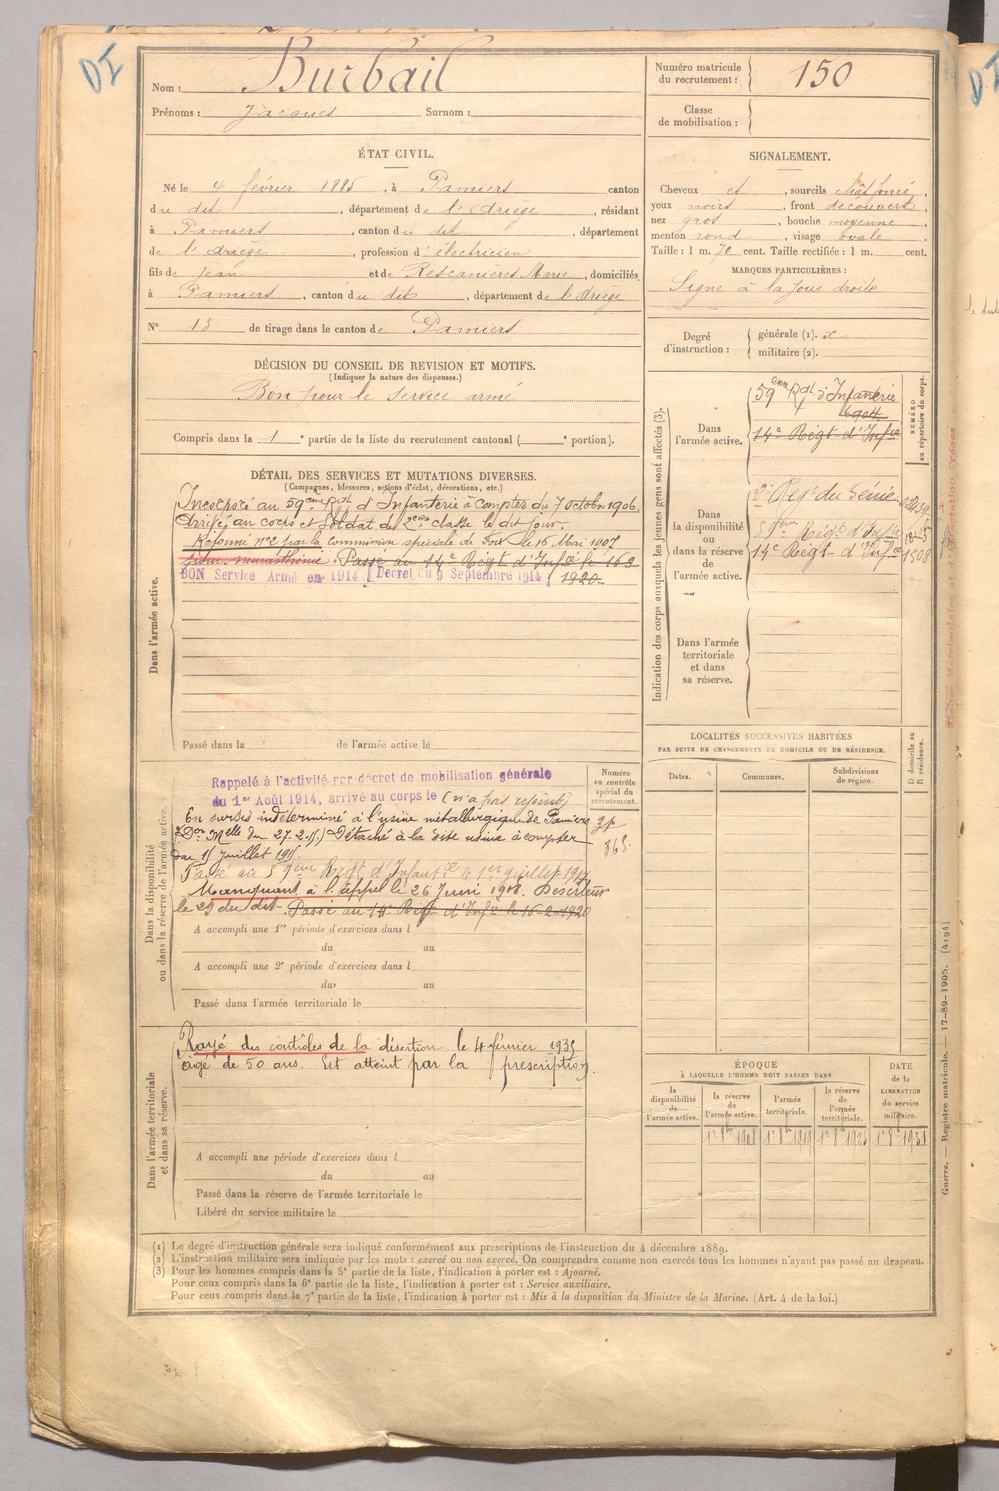 DI
Nom : Burbail
Prénoms : Jacques Surnom :
Numéro matricule du recrutement : 150
Classe de mobilisation :
ÉTAT CIVIL.
Né le 4 février 1885, à Pamiers canton
du dit, département de l'Ariège, résidant
à Pamiers, canton du dit, département
de l'Ariège, profession d'électricien
fils de Jean et de Rescanières Marie, domiciliés
à Pamiers, canton du dit, département de l'Ariège
N° 13 de tirage dans le canton de Pamiers
SIGNALEMENT.
Cheveux et, sourcils chât foncé,
yeux noirs, front découvert,
nez gros, bouche moyenne,
menton rond, visage ovale.
Taille : 1 m. 70 cent. Taille rectifiée : 1 m. cent.
MARQUES PARTICULIÈRES :
Signe à la joue droite
Degré d'instruction : générale (1).
militaire (2).
DÉCISION DU CONSEIL DE REVISION ET MOTIFS.
(Indiquer la nature des dispenses.)
Bon pour le service armé
Compris dans la 1e partie de la liste du recrutement cantonal ( e portion).
DÉTAIL DES SERVICES ET MUTATIONS DIVERSES.
(Campagnes, blessures, actions d'éclat, décorations, etc.)
Dans l'armée active.
Incorporé au 59ème Rgt d'Infanterie à compter du 7 octobre 1906.
Arrivé au corps et Soldat de 2ème classe le dit jour.
Réformé n°2 par la commission spéciale de Foix le 16 Mai 1907
pour neurasthénie. Passé au 14e Régt d'Infie le 16 2
BON Service Armé en 1914 [Decret du 9 Septembre 1914] 1920
Passé dans la de l'armée active le
Indication des corps auxquels les jeunes gens sont affectés (3).
NUMÉRO au répertoire du corps.
Dans l'armée active.
59ème Rgt d'Infanterie
14e Régt d'Infie
Dans la disponibilité ou dans la réserve de l'armée active.
2e Rég du Génie
57ème Régt d'Infie
14e Régt d'Infie 1508
Dans l'armée territoriale et dans sa réserve.
LOCALITÉS SUCCESSIVES HABITÉES
PAR SUITE DE CHANGEMENTS DE DOMICILE OU DE RÉSIDENCE.
Dates. Communes. Subdivisions de région. D domicile ou R résidence.
Dans la disponibilité ou dans la réserve de l'armée active.
Numéro au contrôle spécial du recrutement.
Rappelé à l'activité par décret de mobilisation générale
du 1er Août 1914, arrivé au corps le (n'a pas rejoint)
En sursis indéterminé à l'usine métallurgique de Pamiers
(Don Melle du 27.2.15.) Détaché à la dite usine à compter
du 15 Juillet 1915.
Passé au 57ème Régt d'Infantie le 1er juillet 1917
Manquant à l'appel le 26 Juin 1918. Déserteur
le 29 du dit. Passé au 14e Régt d'Infie le 16-2-1920
A accompli une 1re période d'exercices dans l
du au
A accompli une 2e période d'exercices dans l
du au
Passé dans l'armée territoriale le
Dans l'armée territoriale et dans sa réserve.
Rayé des contrôles de la désertion le 4 février 1935
âgé de 50 ans. Est atteint par la prescription.
A accompli une période d'exercices dans l
du au
Passé dans la réserve de l'armée territoriale le
Libéré du service militaire le
ÉPOQUE
À LAQUELLE L'HOMME DOIT PASSER DANS
la disponibilité de l'armée active.
la réserve de l'armée active.
l'armée territoriale.
la réserve de l'armée territoriale.
DATE de la LIBÉRATION du service militaire.
Guerre. — Registre matricule. — 17-89-1905. [4194]
(1) Le degré d'instruction générale sera indiqué conformément aux prescriptions de l'instruction du 4 décembre 1889.
(2) L'instruction militaire sera indiquée par les mots : exercé ou non exercé. On comprendra comme non exercés tous les hommes n'ayant pas passé au drapeau.
(3) Pour les hommes compris dans la 5e partie de la liste, l'indication à porter est : Ajourné.
Pour ceux compris dans la 6e partie de la liste, l'indication à porter est : Service auxiliaire.
Pour ceux compris dans la 7e partie de la liste, l'indication à porter est : Mis à la disposition du Ministre de la Marine. (Art. 4 de la loi.)